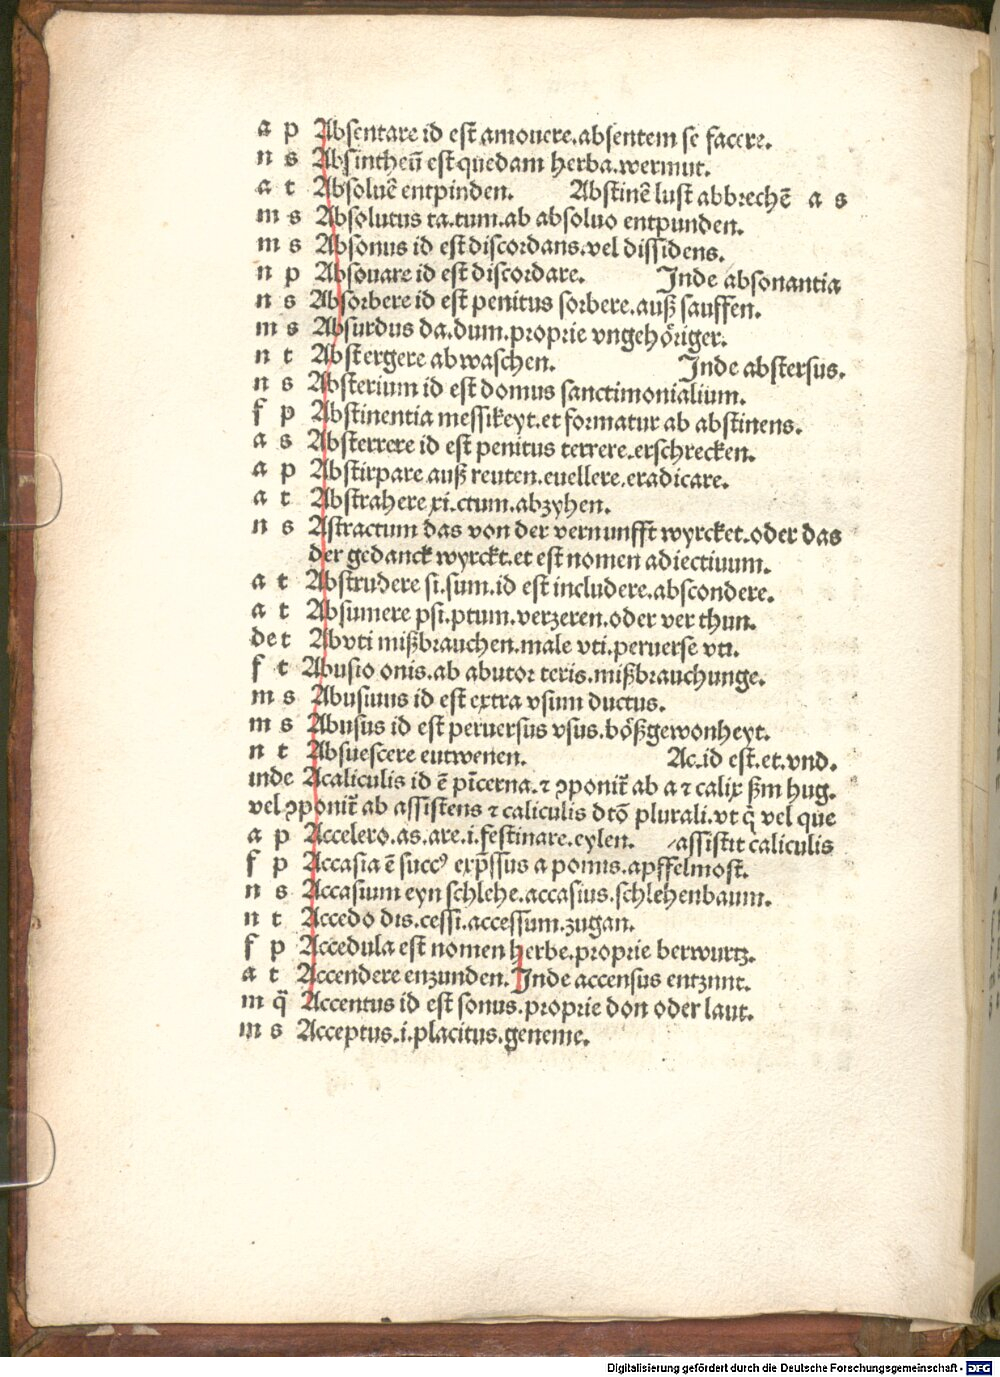 a p Abſentare id eſt amouere.abſentem ſe facere.
n s Abſintheū eſt quedam herba.wermut.
a t Abſoluē entpinden. Abſtinē luſt abbrechē a s
m s Abſolutus ta.tum.ab abſoluo entpunden.
m s Abſonus id eſt diſcordans.vel diſſidens.
n p Abſouare id eſt diſcordare. Inde abſonantia
n s Abſorbere id eſt penitus ſorbere.auß ſauffen.
m s Abſurdus da.dum.proprie vngehöriger.
n t Abſtergere abwaſchen. Inde abſterſus.
n s Abſterium id eſt domus ſanctimonialium.
f p Abſtinentia meſſikeyt.et formatur ab abſtinens.
a s Abſterrere id eſt penitus terrere.erſchrecken.
a p Abſtirpare auß reuten.euellere.eradicare.
a t Abſtrahere xi.ctum.abzyhen.
n s Aſtractum das von der vernunfft wyrcket.oder das
der gedanck wyrckt.et eſt nomen adiectiuum.
a t Abſtrudere ſi.ſum.id eſt includere.abſcondere.
a t Abſumere pſi.ptum.verzeren.oder ver thun.
de t Abvti mißbrauchen.male vti.peruerſe vti.
f t Abuſio onis.ab abutor teris.mißbrauchunge.
m s Abuſiuus id eſt extra vſum ductus.
m s Abuſus id eſt peruerſus vſus.bößgewonheyt.
n t Abſueſcere eutwenen. Ac.id eſt.et.vnd.
inde Acaliculis id ē pīcerna.⁊ ꝯponit̄ ab a ⁊ calix ßm hug.
vel ꝯponit̄ ab aſſiſtens ⁊ caliculis dtō plurali.vt q̄ vel que
a p Accelero.as.are.i.feſtinare.eylen. aſſiſtit caliculis
f p Accaſia ē ſuccꝰ exp̄ſſus a pomis.apffelmoſt.
n s Accaſium eyn ſchlehe.accaſius.ſchlehenbaum.
n t Accedo dis.ceſſi.acceſſum.zugan.
f p Accedula eſt nomen herbe.proprie berwurtz.
a t Accendere enzunden. Inde accenſus entznnt.
m q̄ Accentus id eſt ſonus.proprie don oder laut.
m s Acceptus.i.placitus.geneme.
Digitalisierung gefördert durch die Deutsche Forschungsgemeinschaft - DFG